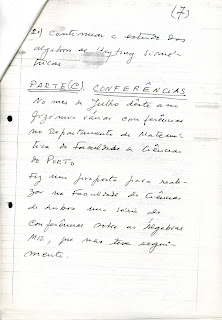 (7)
2º) Continuar o estudo das
álgebras de Heyting simé-
tricas
PARTE (C) CONFERÊNCIAS
No mes de Julho dêste ano
fizemos varias conferências
no Departamento de Matemá-
tica da Faculdade de Ciências
do PORTO
Fez uma proposta para reali-
zar na Faculdade de Ciências
de Lisboa uma série de
Conferências sobre as álgebras
, que não teve segui-
mento.